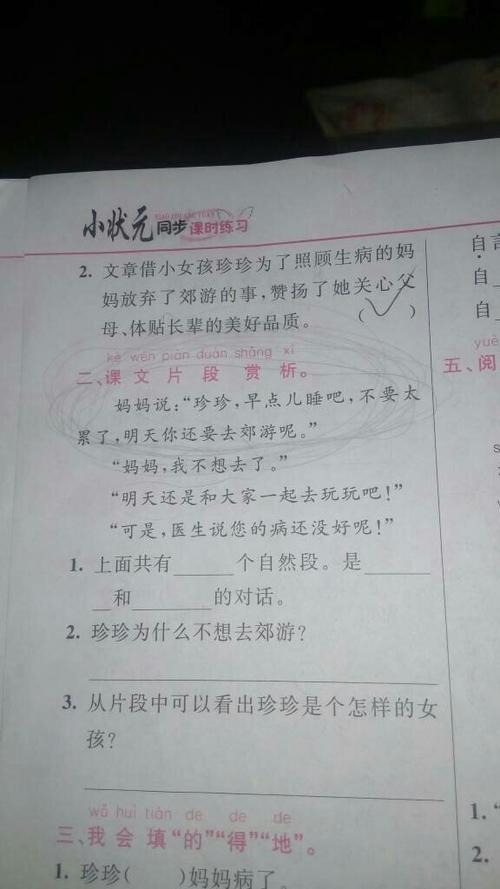 小状元 同步 课时练习
2. 文章借小女孩珍珍为了照顾生病的妈
妈放弃了郊游的事,赞扬了她关心父
母、体贴长辈的美好品质。 ( ✓ )
kè wén piàn duàn shǎng xī
二、课文片段赏析。
妈妈说:“珍珍,早点儿睡吧,不要太
累了,明天你还要去郊游呢。”
“妈妈,我不想去了。”
“明天还是和大家一起去玩玩吧!”
“可是,医生说您的病还没好呢!”
1. 上面共有______个自然段。是______
__和________的对话。
2. 珍珍为什么不想去郊游?
3. 从片段中可以看出珍珍是个怎样的女
孩?
wǒ huì tián de de de
三、我会填“的”“得”“地”。
1. 珍珍( )妈妈病了
自言
自
自
yuè
五、阅
1. “
2.